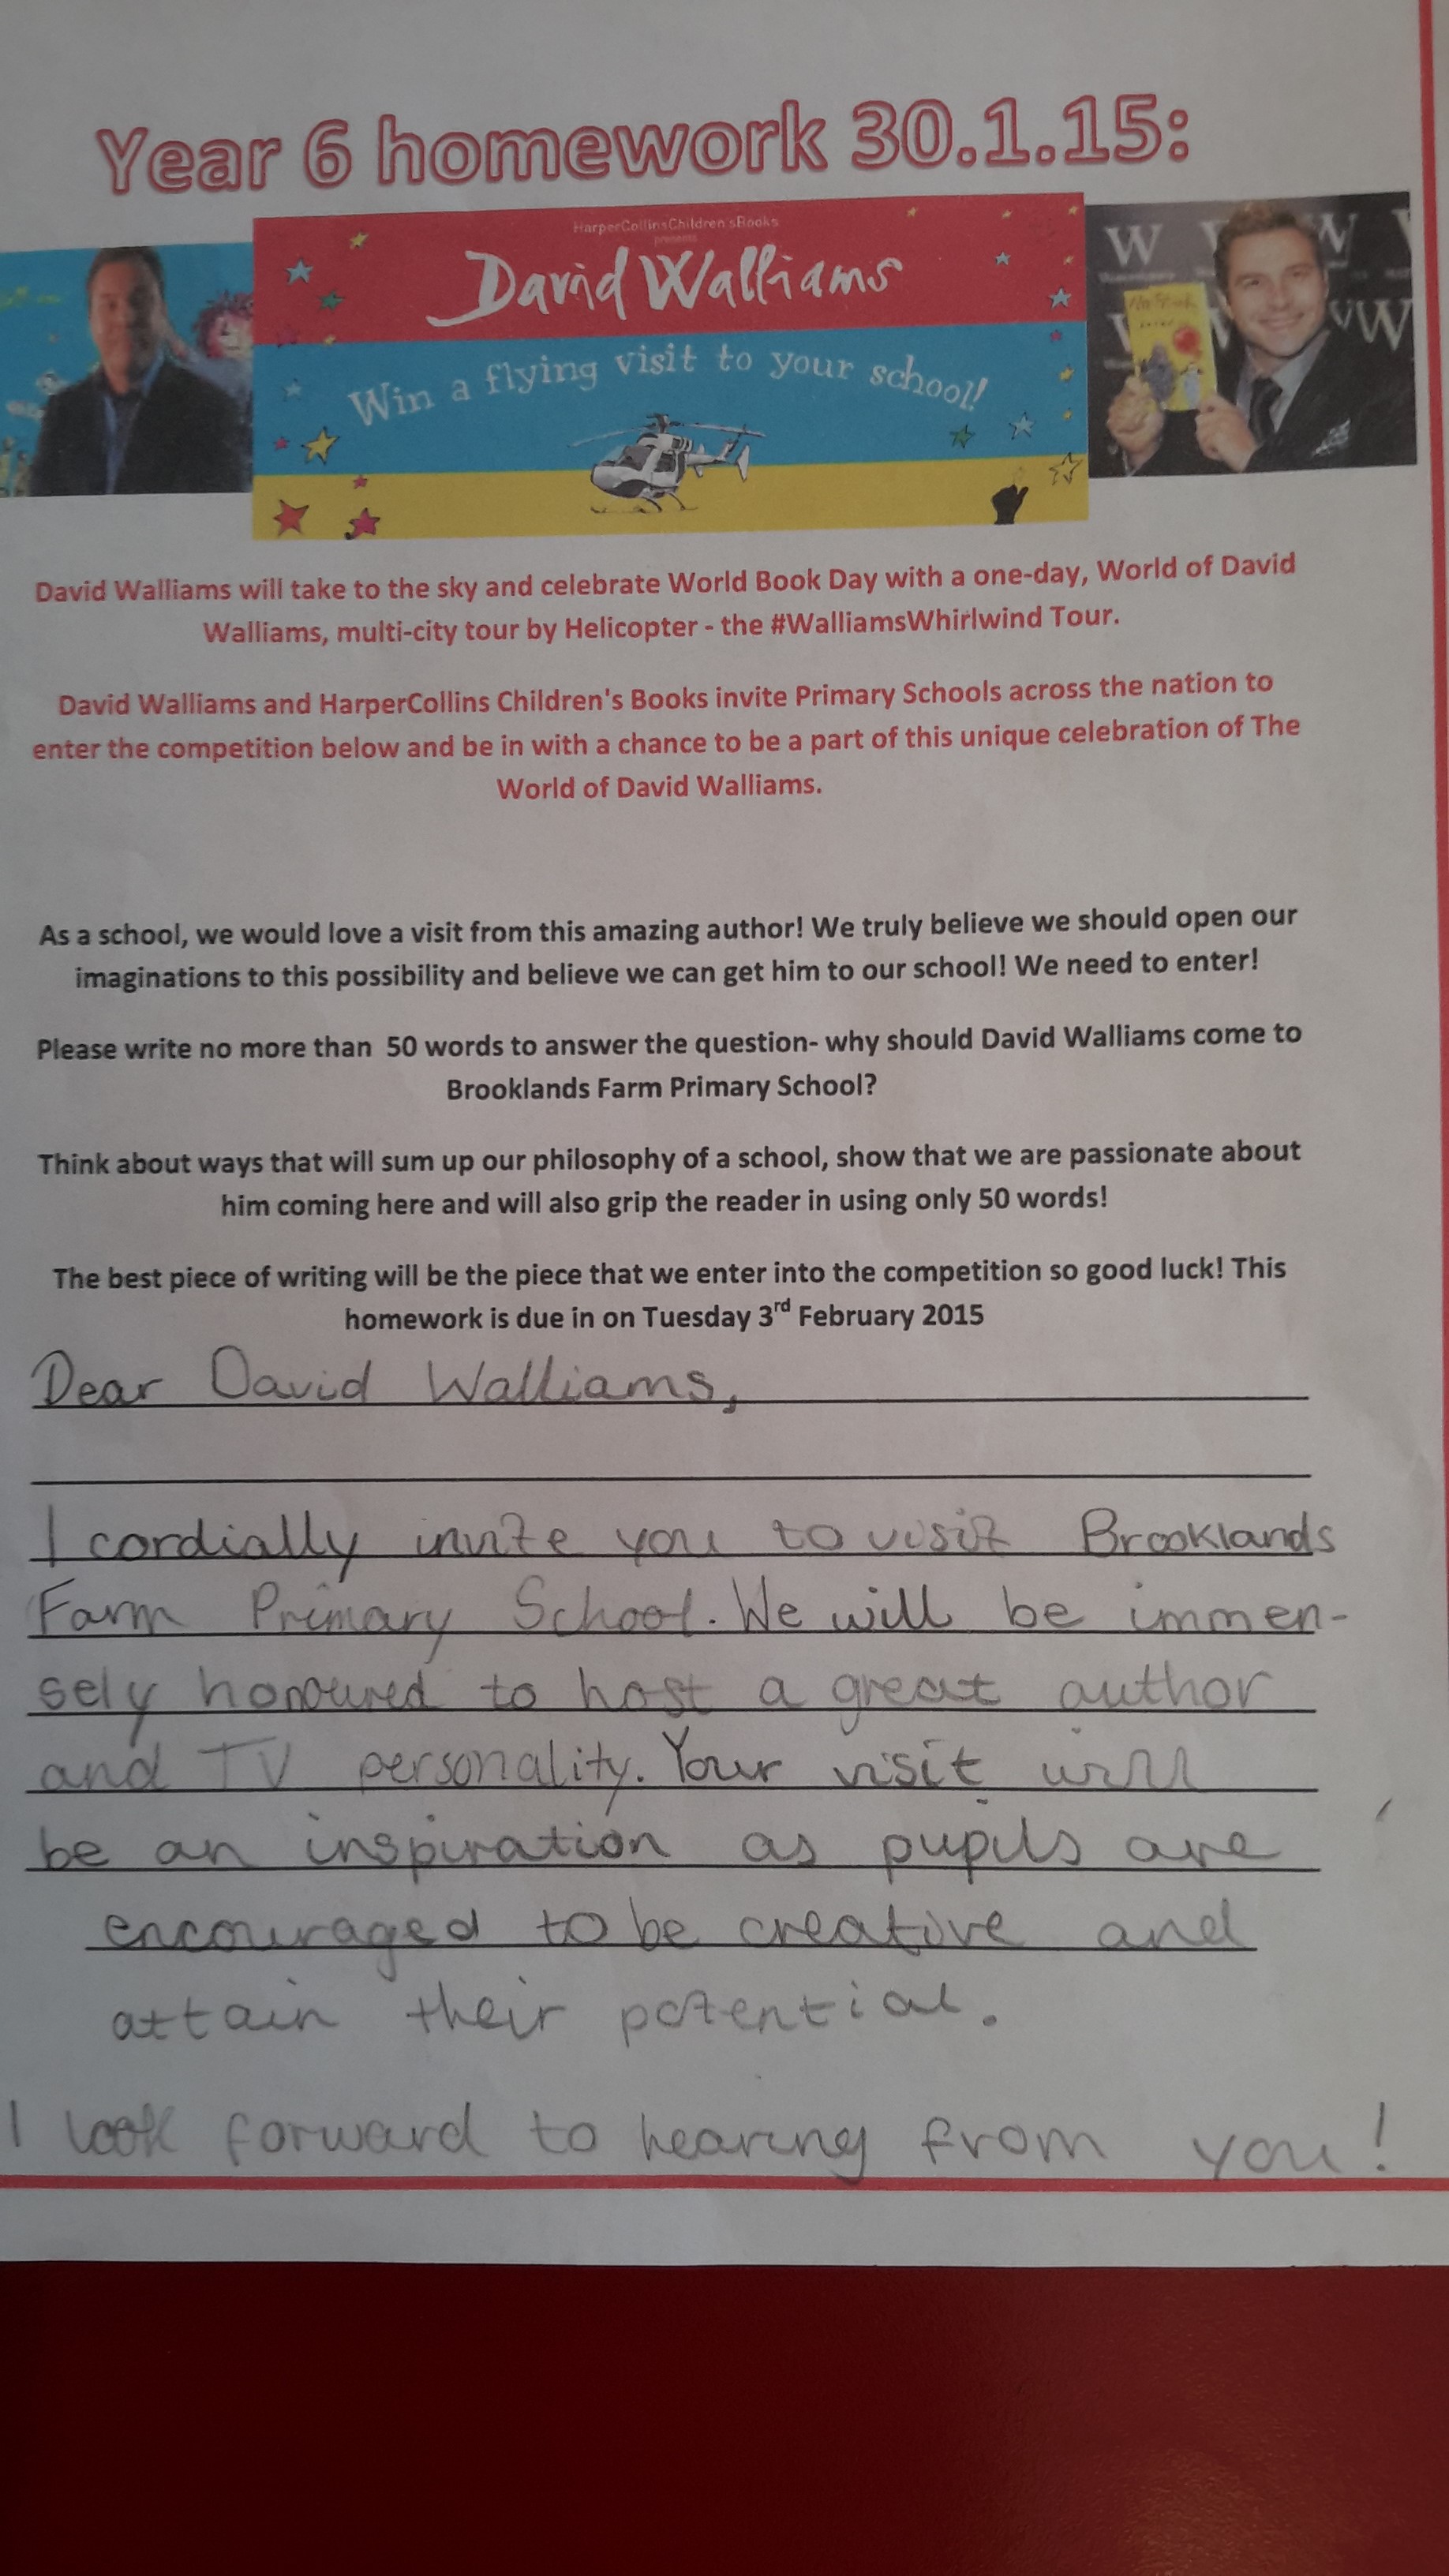 Year 6 homework 30.1.15:
HarperCollinsChildren'sBooks
presents
David Walliams
Win a flying visit to your school!
W
W
W
David Walliams will take to the sky and celebrate World Book Day with a one-day, World of David
Walliams, multi-city tour by Helicopter - the #WalliamsWhirlwind Tour.
David Walliams and HarperCollins Children's Books invite Primary Schools across the nation to
enter the competition below and be in with a chance to be a part of this unique celebration of The
World of David Walliams.
As a school, we would love a visit from this amazing author! We truly believe we should open our
imaginations to this possibility and believe we can get him to our school! We need to enter!
Please write no more than 50 words to answer the question- why should David Walliams come to
Brooklands Farm Primary School?
Think about ways that will sum up our philosophy of a school, show that we are passionate about
him coming here and will also grip the reader in using only 50 words!
The best piece of writing will be the piece that we enter into the competition so good luck! This
homework is due in on Tuesday 3rd February 2015
Dear David Walliams,
I cordially invite you to visit Brooklands
Farm Primary School. We will be immen-
sely honoured to host a great author
and TV personality. Your visit will
be an inspiration as pupils are
encouraged to be creative and
attain their potential.
I look forward to hearing from you!